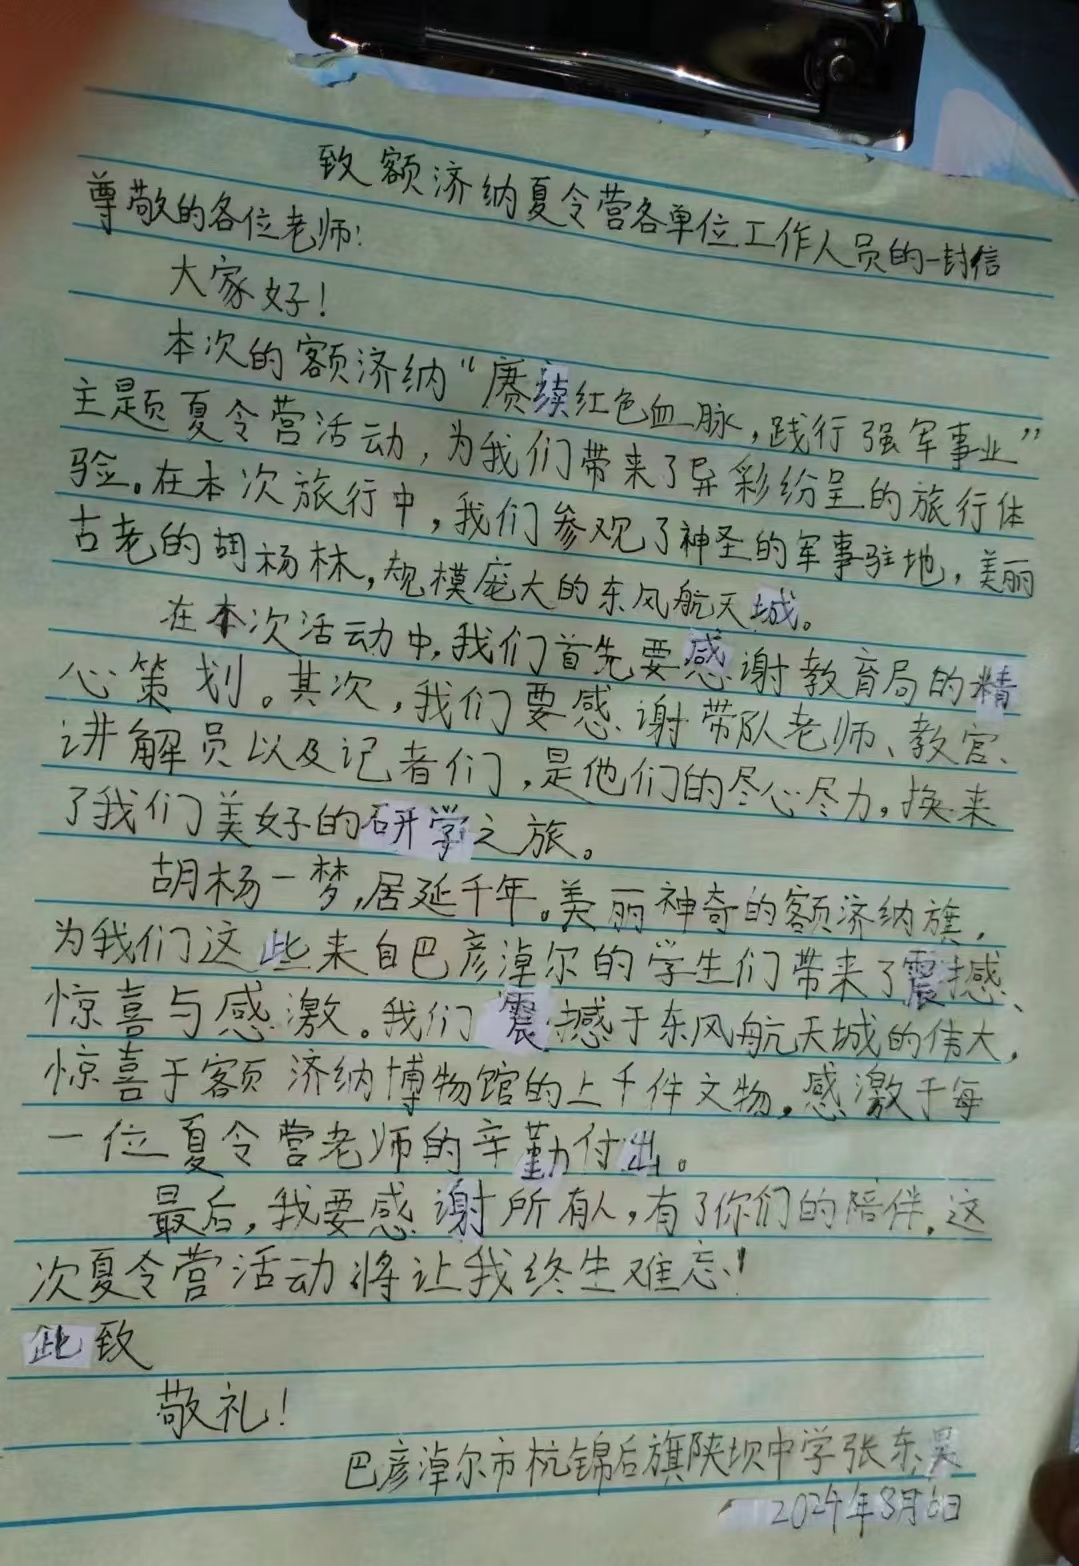 致额济纳夏令营各单位工作人员的一封信
尊敬的各位老师：
大家好！
本次的额济纳“赓续红色血脉，践行强军事业”
主题夏令营活动，为我们带来了异彩纷呈的旅行体
验。在本次旅行中，我们参观了神圣的军事驻地，美丽
古老的胡杨林，规模庞大的东风航天城。
在本次活动中，我们首先要感谢教育局的精
心策划。其次，我们要感谢带队老师、教官、
讲解员以及记者们，是他们的尽心尽力，换来
了我们美好的研学之旅。
胡杨一梦，居延千年。美丽神奇的额济纳旗，
为我们这些来自巴彦淖尔的学生们带来了震撼、
惊喜与感激。我们震撼于东风航天城的伟大，
惊喜于额济纳博物馆的上千件文物，感激于每
一位夏令营老师的辛勤付出。
最后，我要感谢所有人，有了你们的陪伴，这
次夏令营活动将让我终生难忘！
此致
敬礼！
巴彦淖尔市杭锦后旗陕坝中学张东昊
2024年8月6日